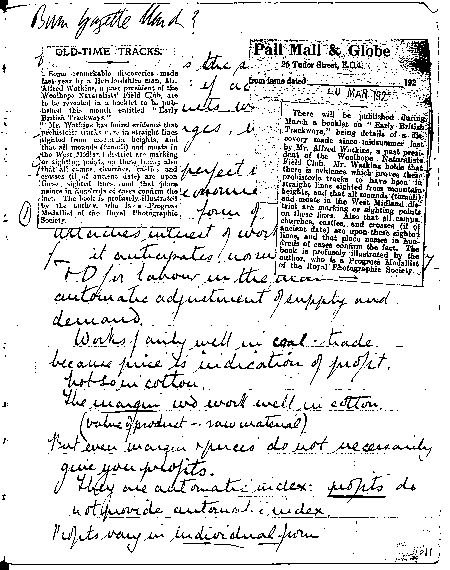 Bham Gazette March ?
OLD-TIME TRACKS.
Some remarkable discoveries made
last year by a Herefordshire man, Mr.
Alfred Watkins, a past president of the
Woolhope Naturalists' Field Club, are
to be revealed in a booklet to be pub-
lished this month entitled "Early
British Trackways."
Mr. Watkins has found evidence that
prehistoric tracks were in straight lines
sighted from mountain heights, and
that all mounds (tumuli) and moats in
the West Midland district are marking
or sighting points on these lines; also
that all camps, churches, castles and
crosses (if of ancient date) are upon
these sighted lines, and that place
names in hundreds of cases confirm the
fact. The book is profusely illustrated
by the author, who is a Progress
Medallist of the Royal Photographic
Society.
Pall Mall & Globe
26 Tudor Street, E.C.4.
from issue dated 192
20 MAR 192
There will be published during
March a booklet on "Early British
Trackways," being details of a dis-
covery made since midsummer last
by Mr. Alfred Watkins, a past presi-
dent of the Woolhope Naturalists'
Field Club. Mr. Watkins holds that
there is evidence which proves that
prehistoric tracks to have been in
straight lines sighted from mountain
heights, and that all mounds (tumuli)
and moats in the West Midland dis-
trict are marking or sighting points
on these lines. Also that all camps,
churches, castles, and crosses (if of
ancient date) are upon these sighted
lines, and that place names in hun-
dreds of cases confirm the fact. The
book is profusely illustrated by the
author, who is a Progress Medallist
of the Royal Photographic Society.
perfect
form of
interest of work
it anticipates
for labour in the
automatic adjustment of supply and
demand.
Works fairly well in coal-trade
because price is indication of profit.
not so in cotton.
The margin wd work well in cotton
(value of product - raw material)
But even margin & prices do not necessarily
give you profits.
They are automatic index: profits do
not provide automatic index
Profits vary in individual firm